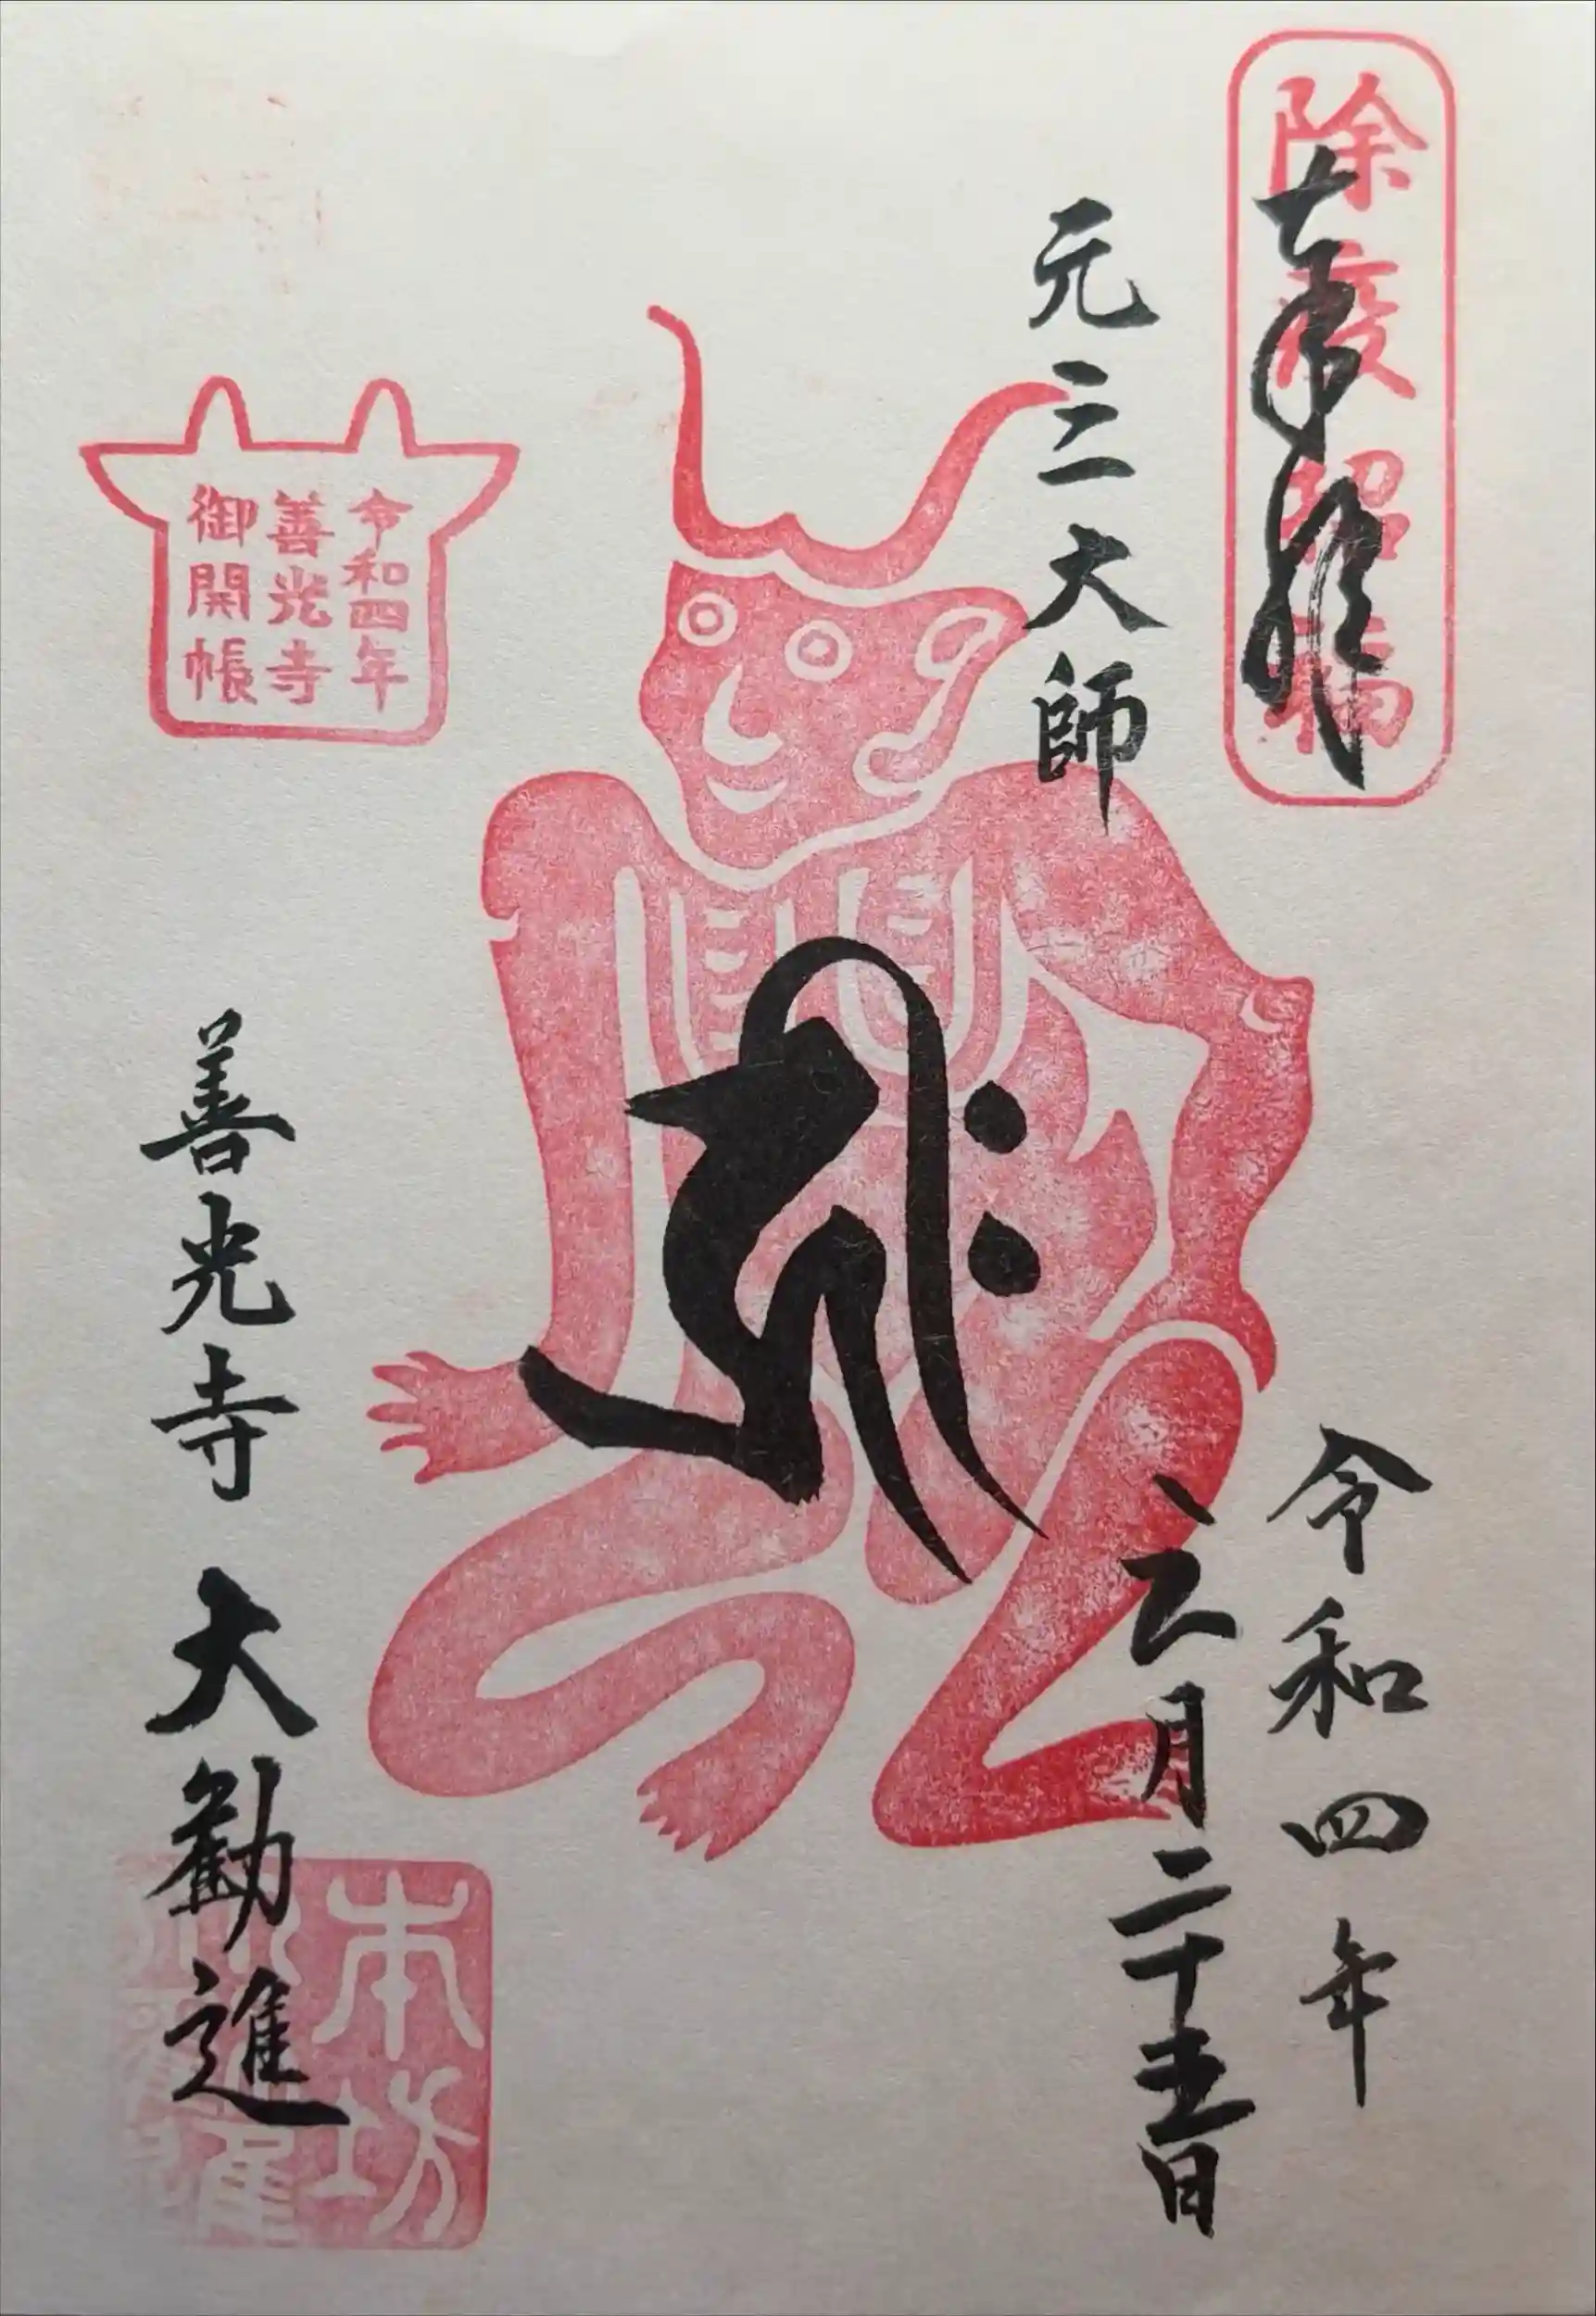 除疫招福
奉拝
令和四年
六月二十五日
元三大師
𑖮𑖿𑖨𑖱𑖾
令和四年
善光寺
御開帳
善光寺 大勧進
本坊